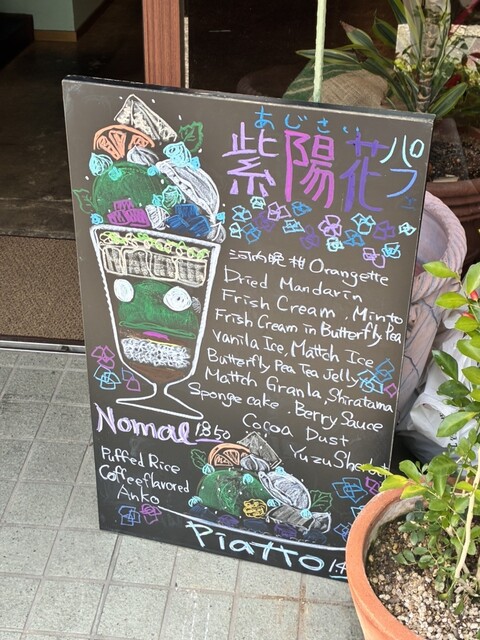 あじさい
紫陽花パフェ
河内晩柑 Orangette
Dried Mandarin
Frish Cream . Minto
Frish Cream in Butterfly Pea
Vanila Ice, Mattch Ice
Butterfly Pea Tea Jelly
Mattch Granla, Shiratama
Sponge cake . Berry Sauce
Cocoa Dust
Yuzu Sherbet
Nomal 1350
Puffed Rice
Coffee flavored
Anko
Piatto